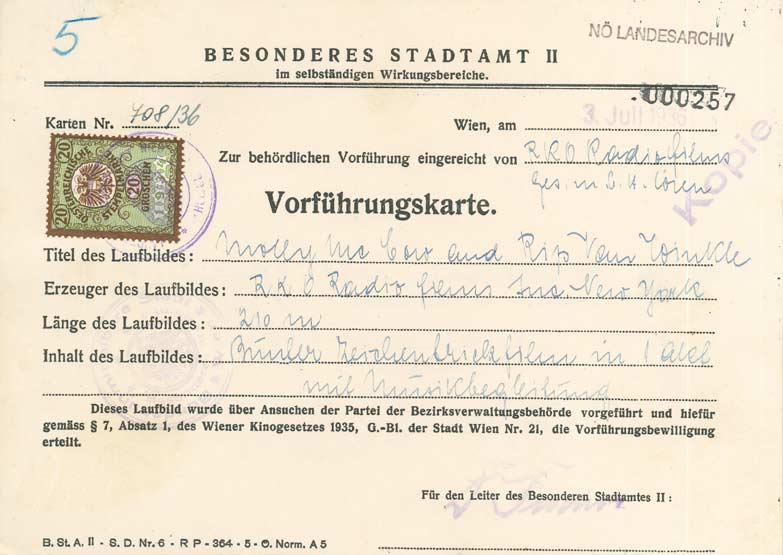 5
NÖ LANDESARCHIV
BESONDERES STADTAMT II
im selbständigen Wirkungsbereiche.
-000257
Karten Nr. 708/36
Wien, am 3. Juli 1936
Zur behördlichen Vorführung eingereicht von RKO Radiofilms
Ges. m. b. H. Wien
Kopie
20 ÖSTERREICHISCHE STEMPELMARKE 20
20 GROSCHEN
Vorführungskarte.
Titel des Laufbildes: Molly Mc Cow and Rip Van Winkle
Erzeuger des Laufbildes: RKO Radio films Inc. New York
Länge des Laufbildes: 210 m
Inhalt des Laufbildes: Bunter Zeichentrickfilm in 1 Akt
mit Musikbegleitung
Dieses Laufbild wurde über Ansuchen der Partei der Bezirksverwaltungsbehörde vorgeführt und hiefür
gemäss § 7, Absatz 1, des Wiener Kinogesetzes 1935, G.-Bl. der Stadt Wien Nr. 21, die Vorführungsbewilligung
erteilt.
Für den Leiter des Besonderen Stadtamtes II:
B. St. A. II - S. D. Nr. 6 - R P - 364 - 5 - Ö. Norm. A 5